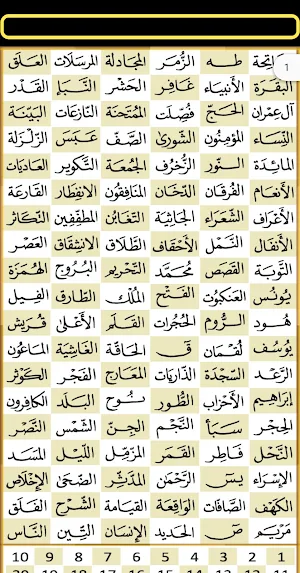 اتحة طه الزمر المجادلة المرسلات العلق
1
البقرة الأنبياء غافر الحشر النبإ القدر
آل عمران الحج فصلت الممتحنة النازعات البينة
النساء المؤمنون الشورى الصف عبس الزلزلة
المائدة النور الزخرف الجمعة التكوير العاديات
الأنعام الفرقان الدخان المنافقون الانفطار القارعة
الأعراف الشعراء الجاثية التغابن المطففين التكاثر
الأنفال النمل الأحقاف الطلاق الانشقاق العصر
التوبة القصص محمد التحريم البروج الهمزة
يونس العنكبوت الفتح الملك الطارق الفيل
هود الروم الحجرات القلم الأعلى قريش
يوسف لقمان ق الحاقة الغاشية الماعون
الرعد السجدة الذاريات المعارج الفجر الكوثر
إبراهيم الأحزاب الطور نوح البلد الكافرون
الحجر سبأ النجم الجن الشمس النصر
النحل فاطر القمر المزمل الليل المسد
الإسراء يس الرحمن المدثر الضحى الإخلاص
الكهف الصافات الواقعة القيامة الشرح الفلق
مريم ص الحديد الإنسان التين الناس
1 2 3 4 5 6 7 8 9 10